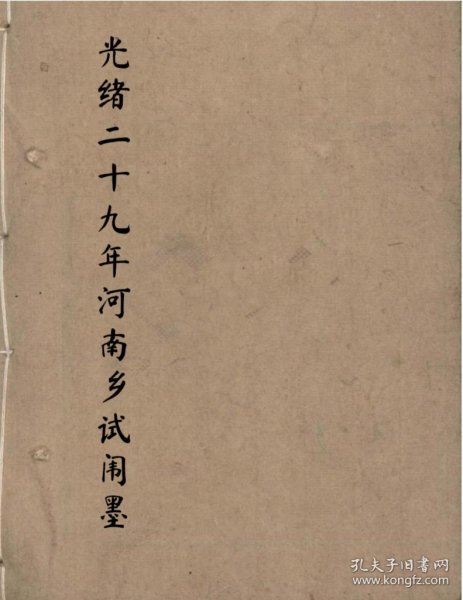 光绪二十九年河南乡试闱墨
孔夫子旧书网
www.kongfz.com